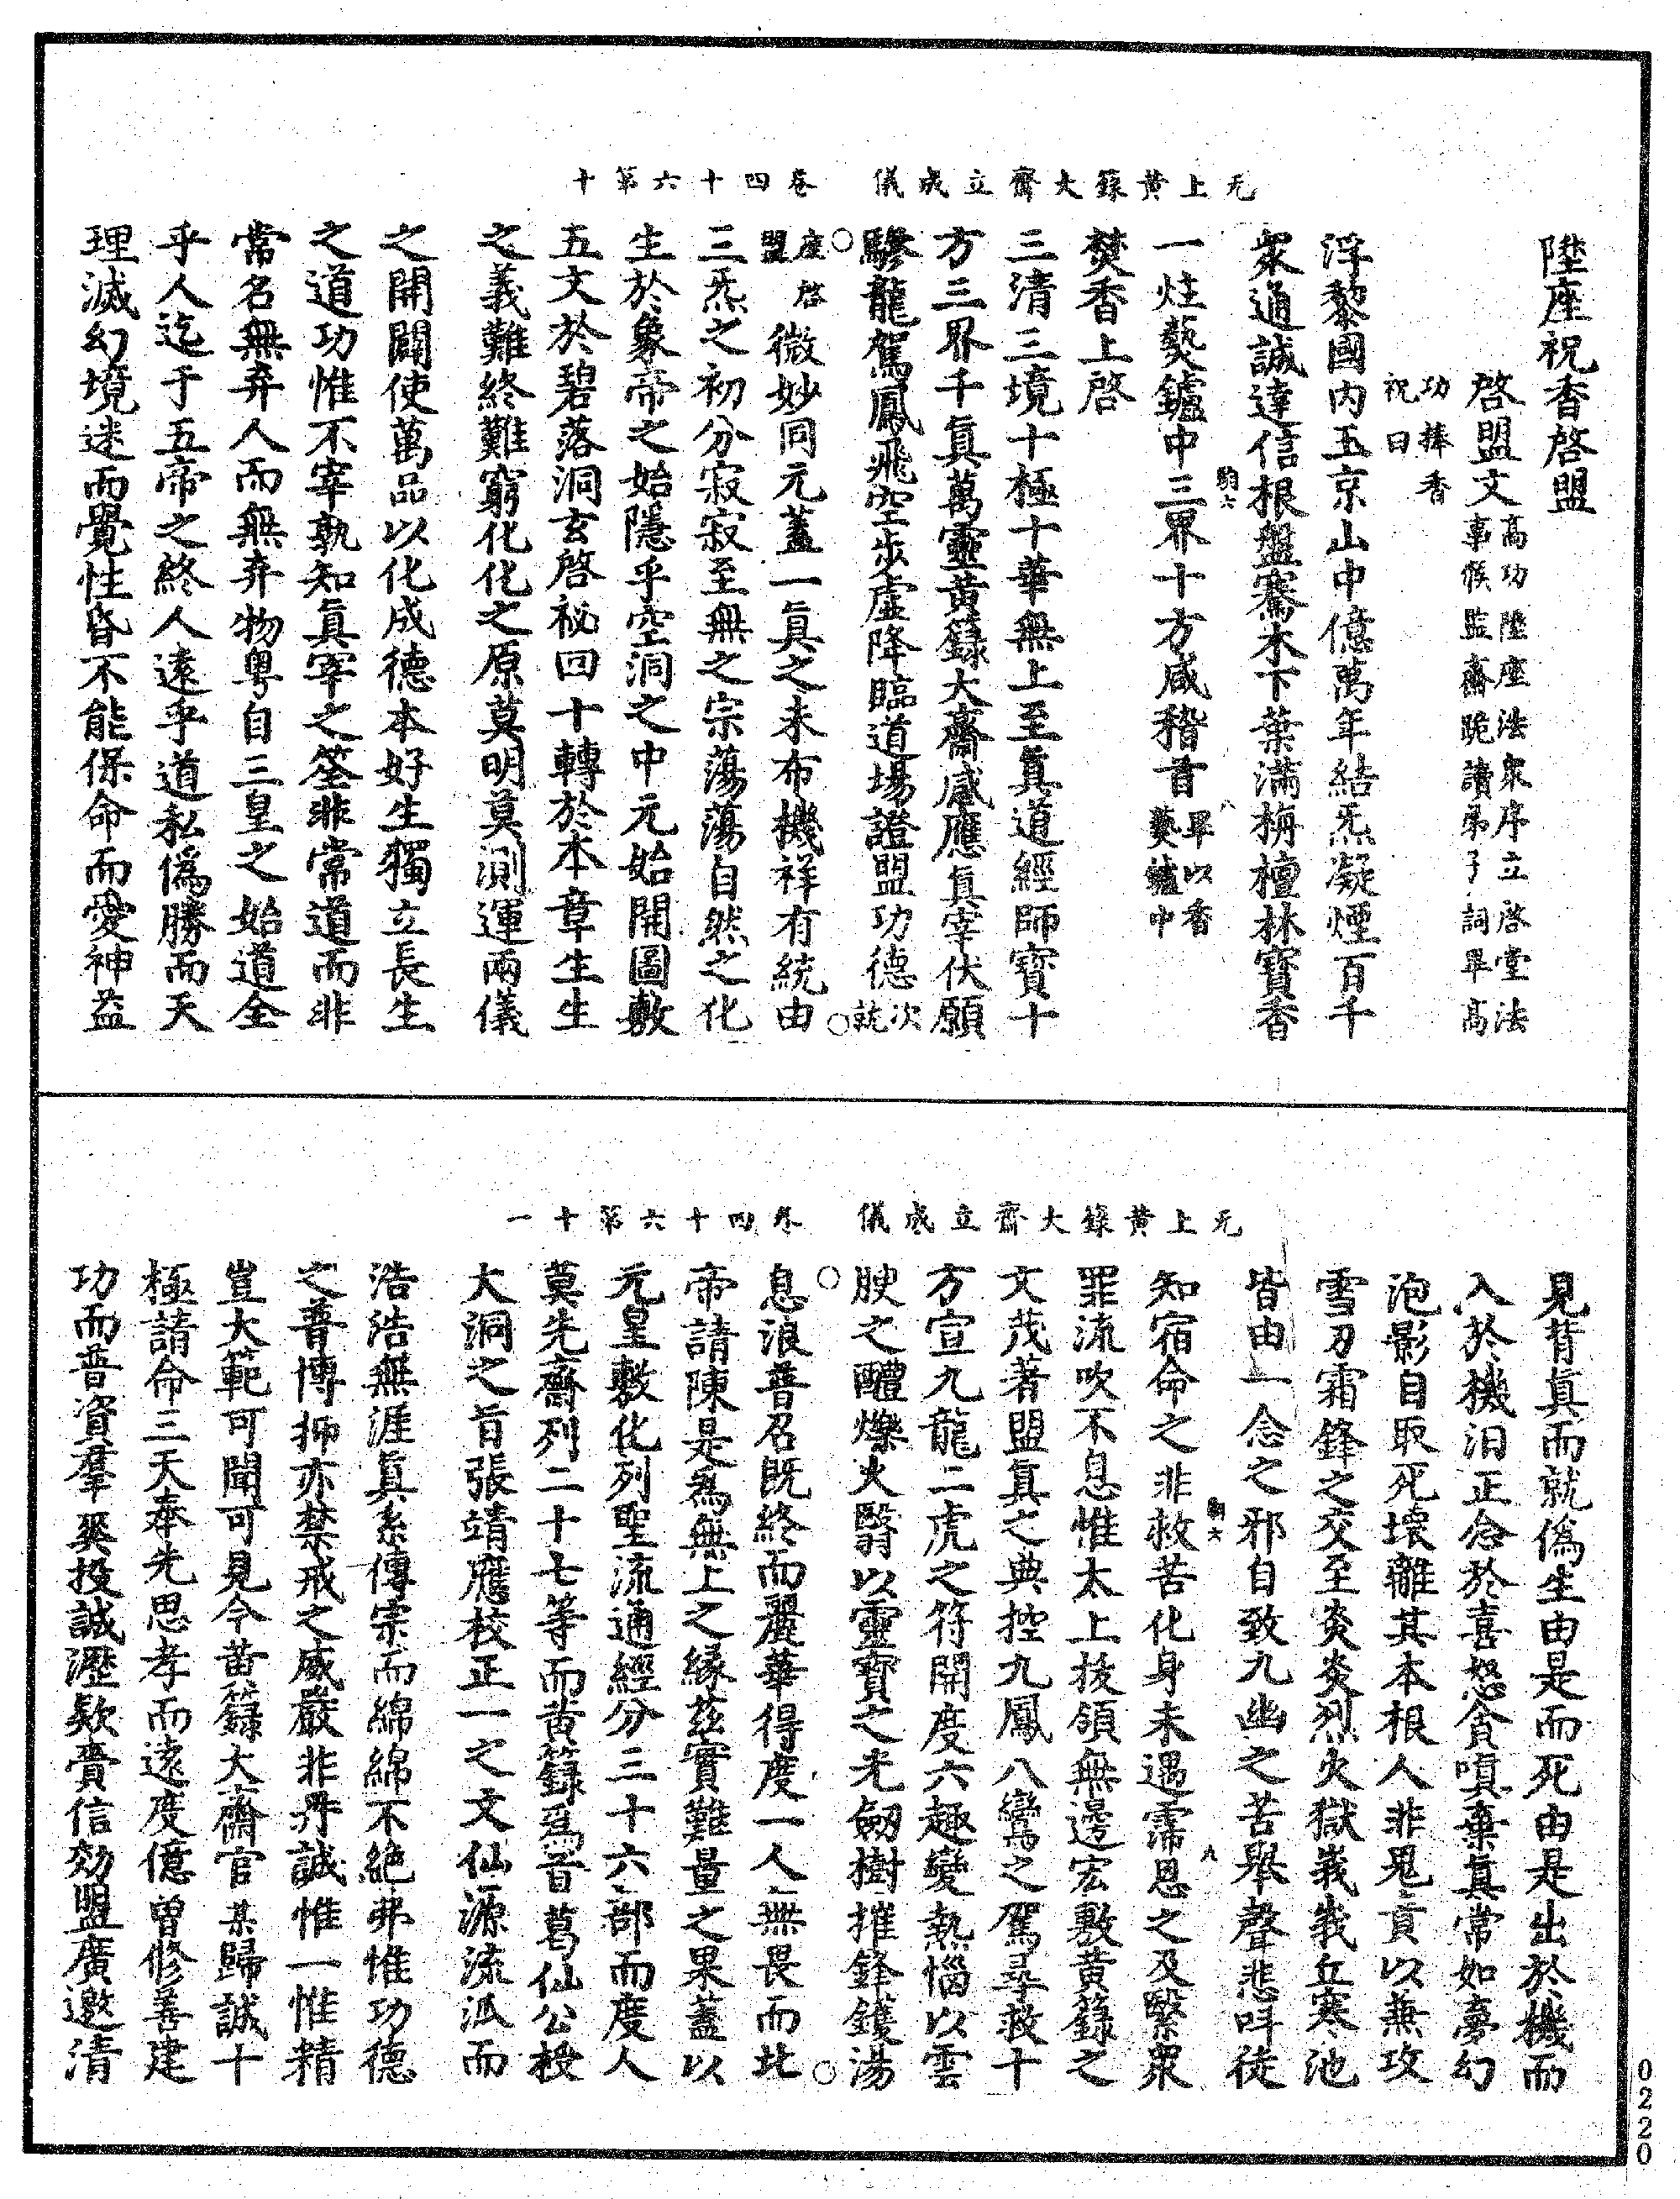 无上黃籙大齋立成儀　卷四十六第十
陞座祝香啓盟
啓盟文高功陞座法衆序立啓堂法事候監齋跪讀弟子詞畢高
功捧香祝曰
浮黎國內玉京山中億萬年結炁凝煙百千
衆通誠達信根盤騫木下葉滿栴檀林寶香
一炷爇鑪中三界十方咸稽首畢以香爇鑪中
焚香上啓
三清三境十極十華無上至眞道經師寶十
方三界千眞萬靈黃籙大齋感應眞宰伏願
驂龍駕鳳飛空步虛降臨道場證盟功德次就
座啓盟微妙同元蓋一眞之未布機祥有統由
三炁之初分寂寂至無之宗蕩蕩自然之化
生於象帝之始隱乎空洞之中元始開圖敷
五文於碧落洞玄啓祕回十轉於本章生生
之義難終難窮化化之原莫明莫測運兩儀
之開闢使萬品以化成德本好生獨立長生
之道功惟不宰孰知眞宰之筌非常道而非
常名無弃人而無弃物粤自三皇之始道全
乎人迄于五帝之終人遠乎道私僞勝而天
理滅幻境迷而覺性昏不能保命而愛神益
无上黃籙大齋立成儀　卷四十六第十一
見背眞而就僞生由是而死由是出於機而
入於機汨正念於喜怒貪嗔棄眞常如夢幻
泡影自取死壞離其本根人非鬼責以兼攻
雪刃霜鋒之交至炎炎烈火獄峩峩丘寒池
皆由一念之邪自致九幽之苦舉聲悲呌徒
知宿命之非救苦化身未遇霈恩之及繄衆
罪流吹不息惟太上拔領無邊宏敷黃籙之
文茂著盟眞之典控九鳳八鸞之駕尋救十
方宣九龍二虎之符開度六趣變熱惱以雲
腴之醴爍火翳以靈寶之光劒樹摧鋒鑊湯
息浪普召旣終而麗華得度一人無畏而北
帝請陳是爲無上之緣茲實難量之果蓋以
元皇敷化列聖流通經分三十六部而度人
莫先齋列二十七等而黃籙爲首葛仙公授
大洞之旨張靖應校正一之文仙源流派而
浩浩無涯眞系傳宗而綿綿不絶弗惟功德
之普博抑亦禁戒之威嚴非丹誠惟一惟精
豈大範可聞可見今黃籙大齋官某歸誠十
極請命三天奉先思孝而遠度億曾修善建
功而普資羣奭投誠瀝款賫信効盟廣邀清
0220